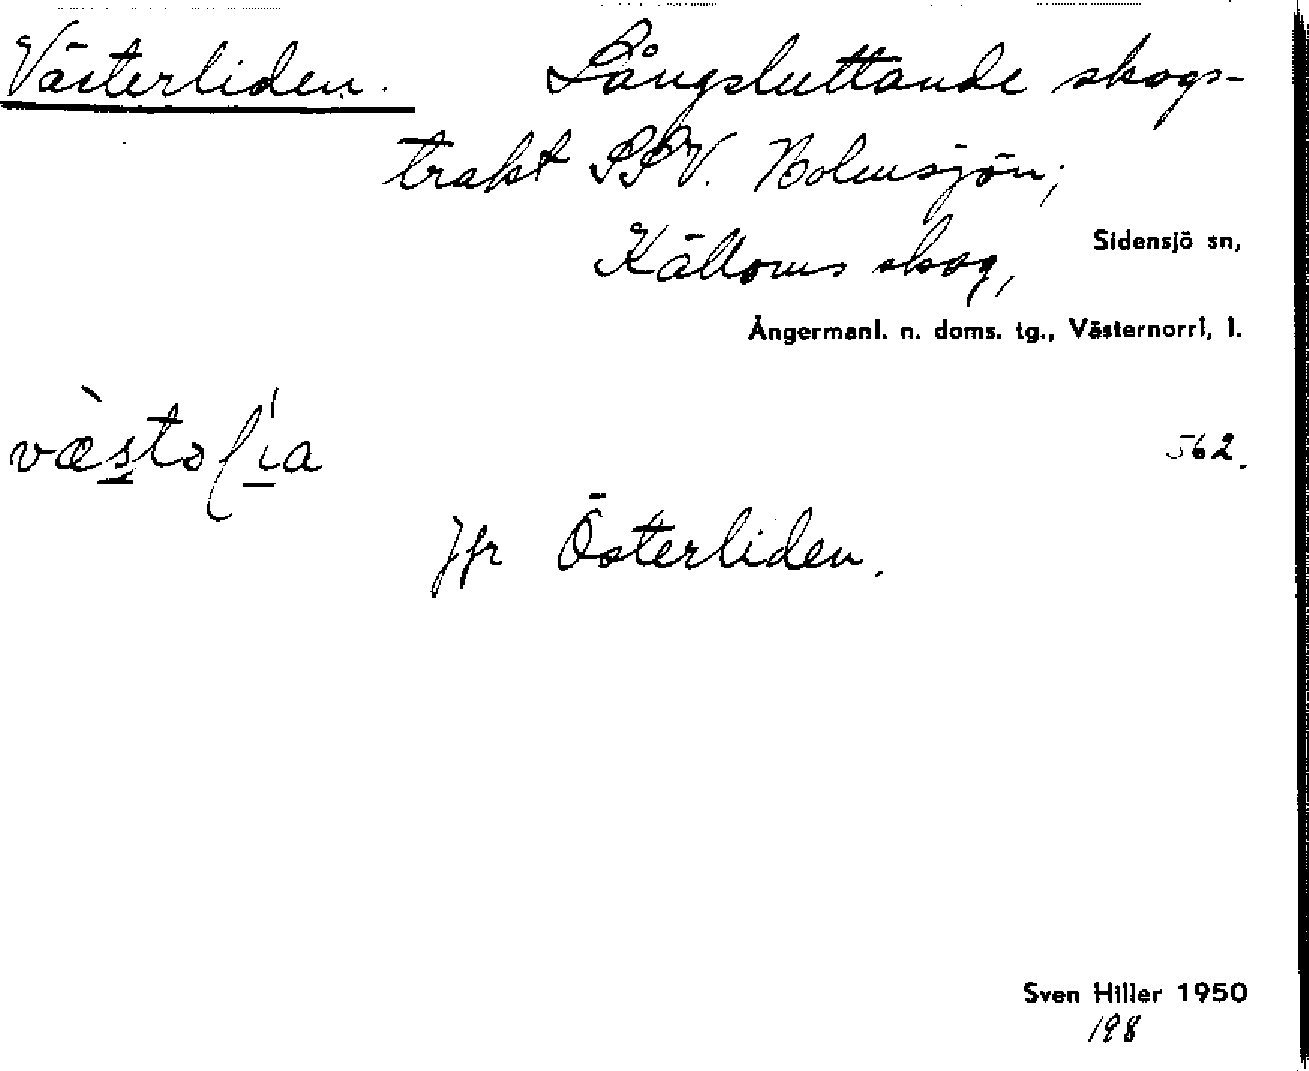 Västerliden. Långsluttande skogs-
trakt SSV. Bolmsjön;
Källoms skog,
Sidensjö sn,
Ångermanl. n. doms. tg., Västernorrl. l.
562.
Jfr Österliden.
Sven Hiller 1950
198